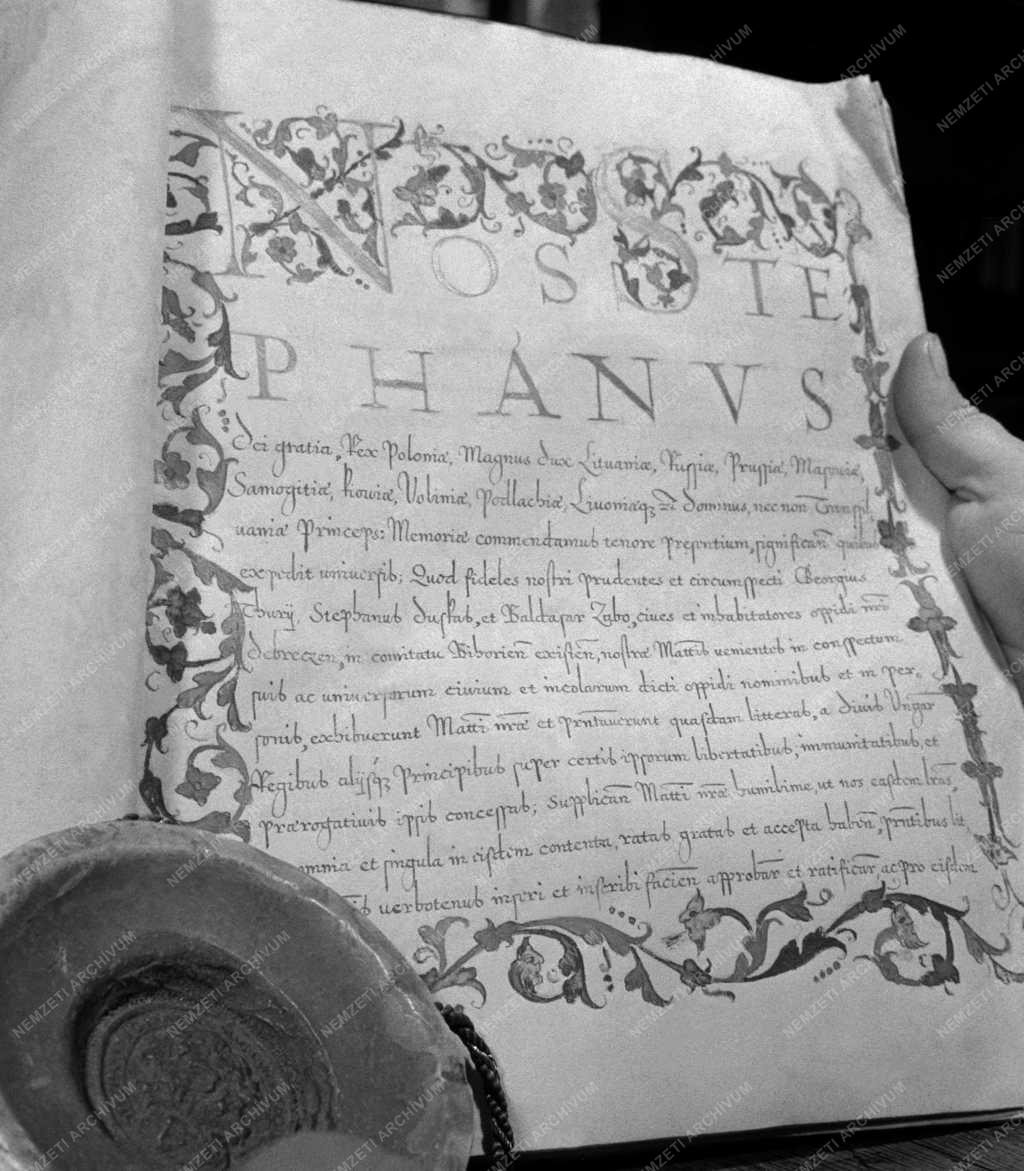 NOS STE
PHANVS
Dei gratia, Rex Poloniæ, Magnus dux Lituaniæ, Russiæ, Prussiæ, Massoviæ,
Samogitiæ, Kiowiæ, Voliniæ, Podlachiæ, Livoniæqȝ &c Dominus, nec non Transsil
uaniæ Princeps: Memoriæ commendamus tenore presentium, significan̄ quibus
expedit uniuersis; Quod fideles nostri prudentes et circumspecti Georgius
Thury, Stephanus Duskas, et Baldasar Zabo, ciues et inhabitatores oppidi nr̄i
debreczen, in comitatu Bihorien̄ existen̄, nostræ Mattīs uementes in conspectum
suis ac uniuersorum ciuium et incolarum dicti oppidi nominibus et in per⸗
sonis, exhibuerunt Mattī nr̄æ et prn̄tauerunt quasdam litteras, a diuis Ungar
Regibus alijsq́ȝ Principibus super certis ipsorum libertatibus, immunitatibus, et
prærogatiuis ipsis concessas; Supplican̄ Mattī nr̄æ humilime, ut nos easdem lr̄as,
omnia et singula in eisdem contenta, ratas gratas et accepta haben̄, prn̄tibus lit
uerbotenus inseri et inscribi facien̄ approbar̄ et ratificar̄, ac pro eisdem
NEMZETI ARCHÍVUM